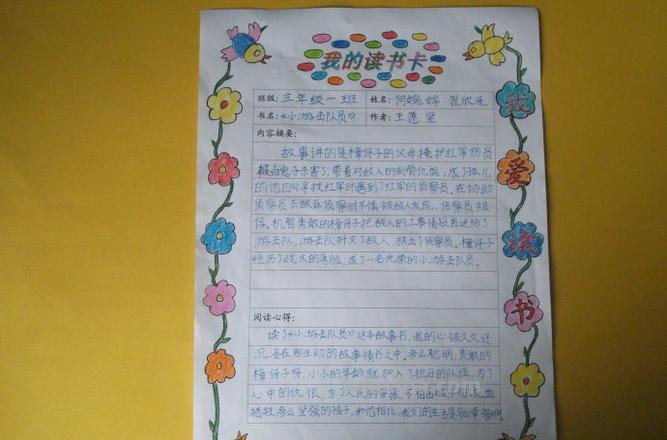 我的读书卡
班级: 三年级一班 姓名: 何婉婷
书名: 《小游击队员》 作者: 王愿坚
内容摘要:
故事讲的是樟伢子的父母掩护红军伤员
被白鬼子杀害了,带着对敌人的刻骨仇恨,成了孤儿
的他在寻找红军时遇到了红军的侦察员,在协助
侦察员去敌区侦察时不慎被敌人发现,侦察员被
俘。机智勇敢的樟伢子把敌人的工事情报送给了
游击队,游击队歼灭了敌人,救出了侦察员。樟伢子
经历了战火的考验,成了一名光荣的小游击队员。
阅读心得:
读了《小游击队员》这本故事书,我的心被久久
沉浸在那生动的故事情书之中,多么聪明,勇敢的
樟伢子呀,小小的年龄就加入了抗日的队伍,为了
心中的仇恨,为了人民的安张,不怕
牺牲,多么坚强的孩子,和他相比,我们的生活是多么幸福啊
我
爱
读
书